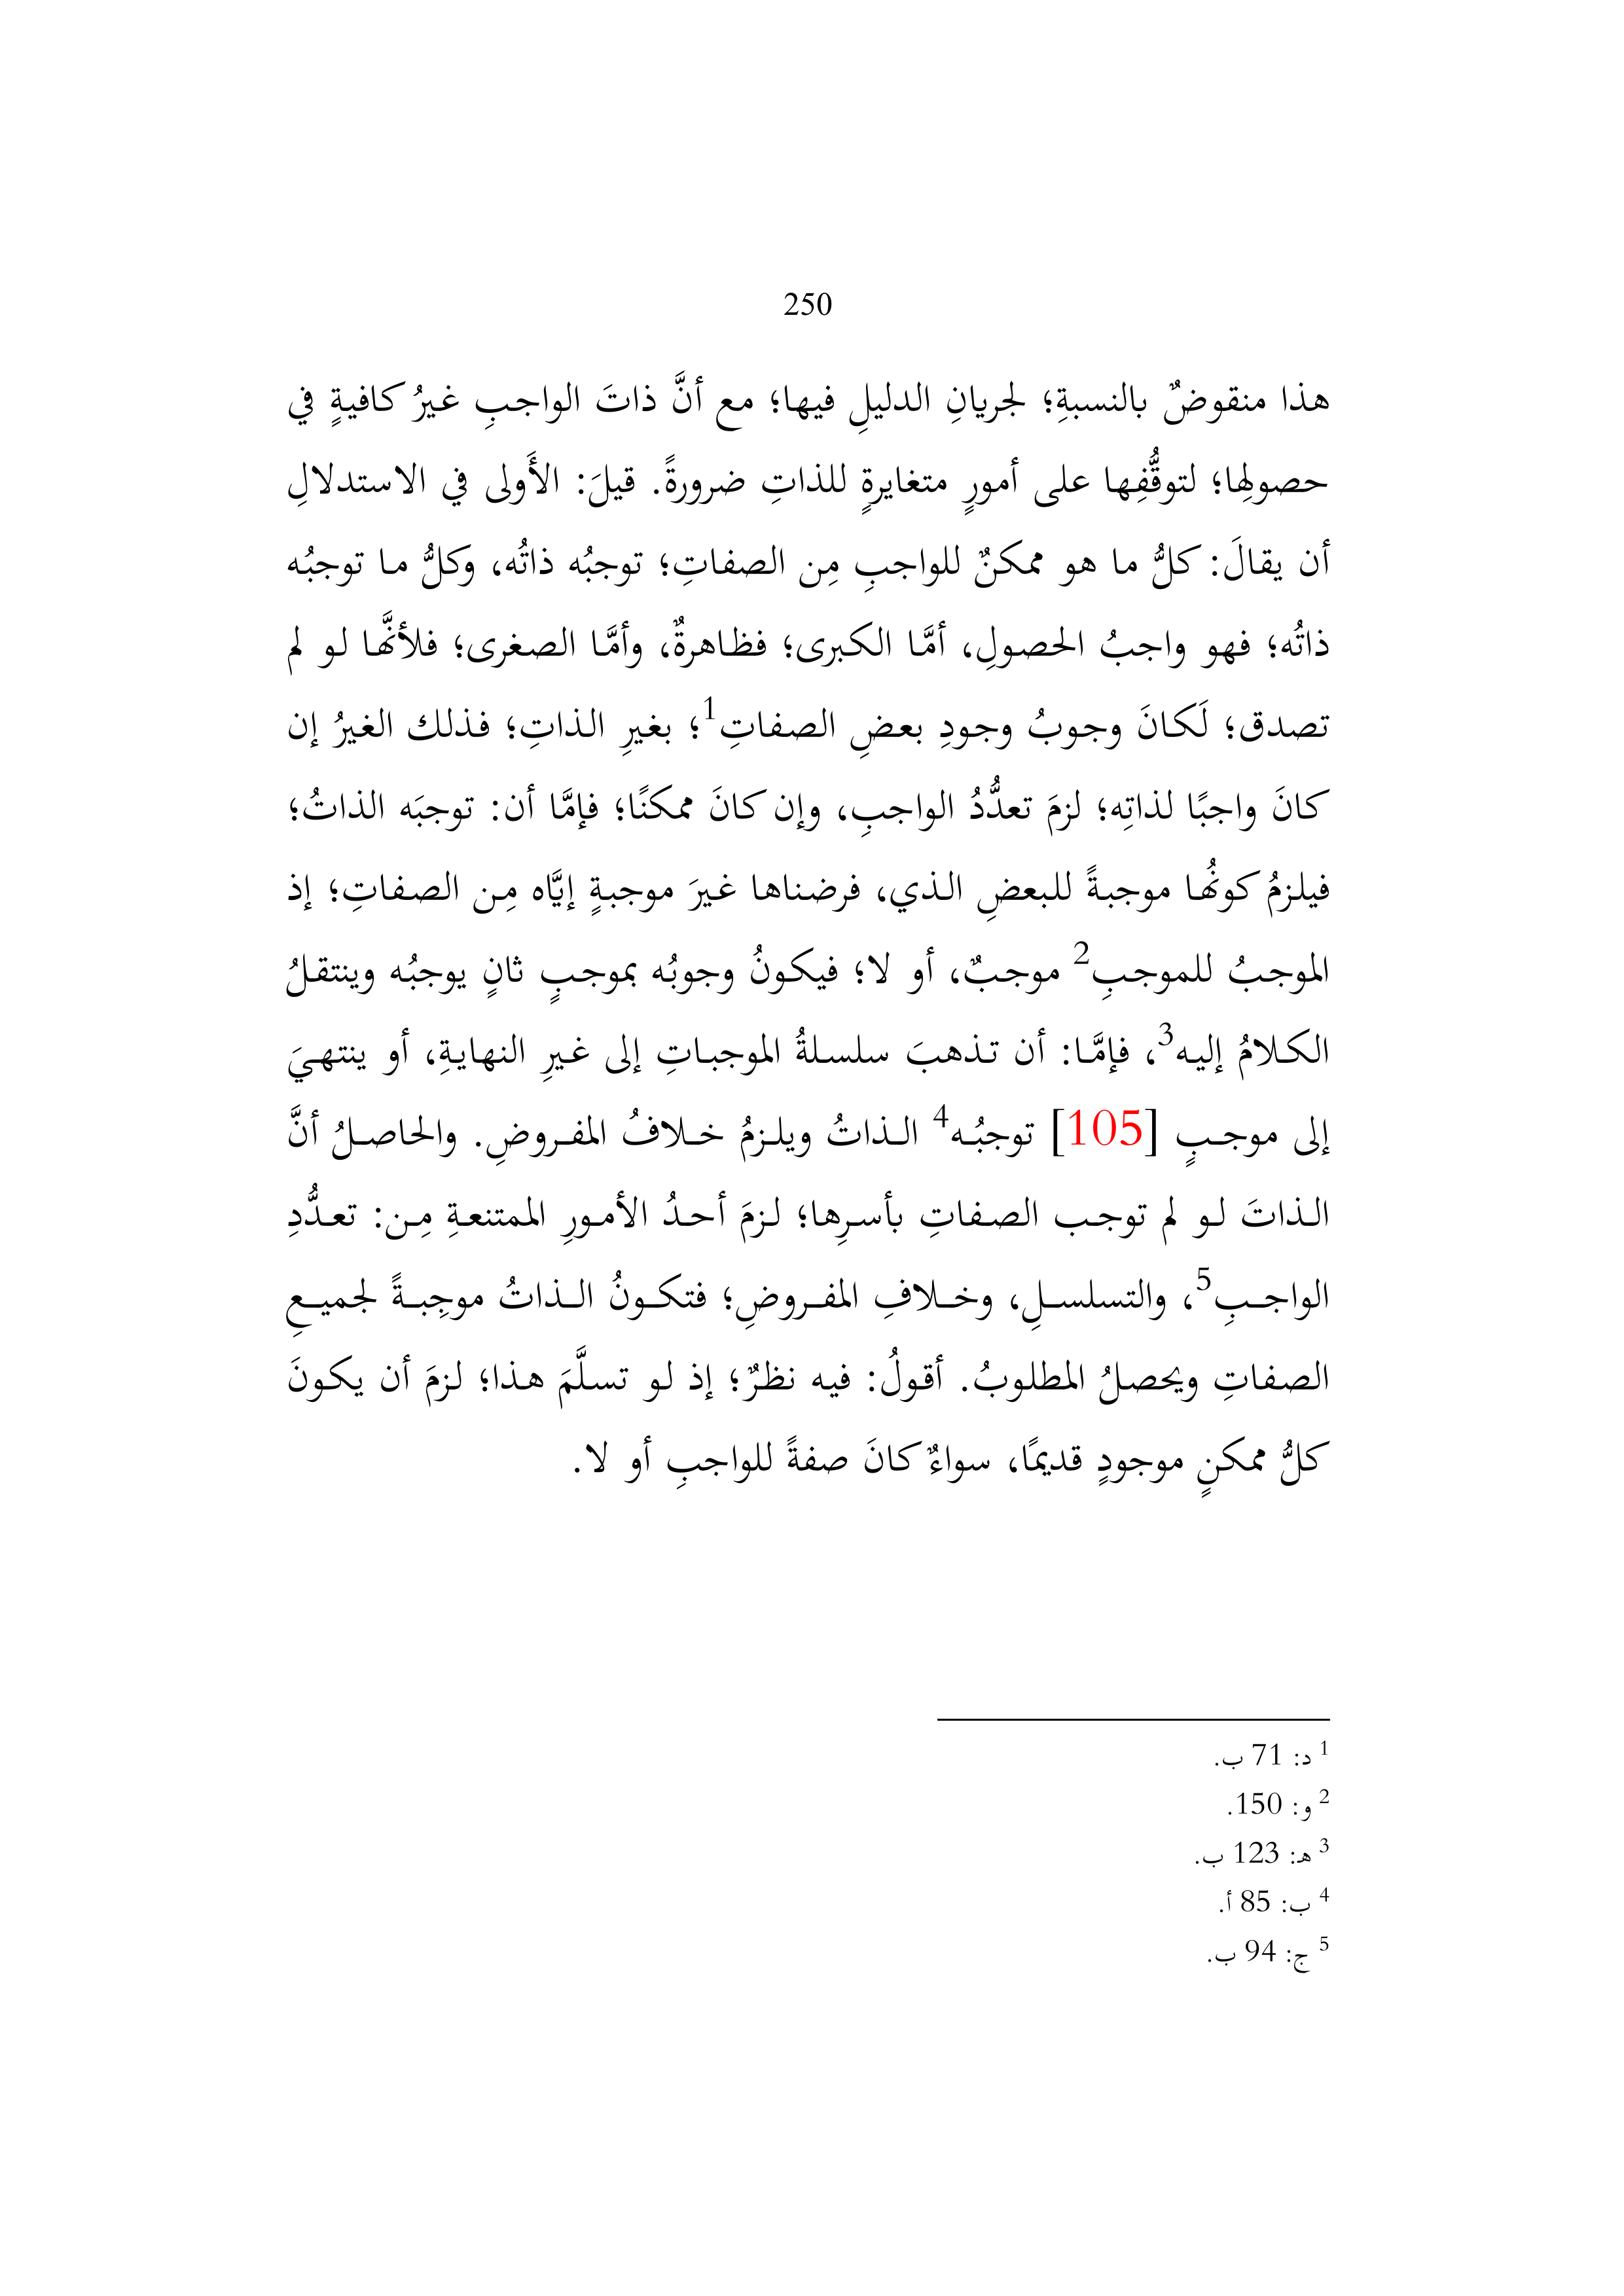 250
هذا منقوضٌ بالنسبةِ؛ لجريانِ الدليلِ فيها؛ مع أنَّ ذاتَ الواجبِ غيرُ كافيةٍ في
حصولِها؛ لتوقُّفِها على أمورٍ متغايرةٍ للذاتِ ضرورةً. قيلَ: الأَولى في الاستدلالِ
أن يقالَ: كلُّ ما هو ممكنٌ للواجبِ مِن الصفاتِ؛ توجبُه ذاتُه، وكلُّ ما توجبُه
ذاتُه؛ فهو واجبُ الحصولِ، أمَّا الكبرى؛ فظاهرةٌ، وأمَّا الصغرى؛ فلأنَّها لو لم
تصدق؛ لَكانَ وجوبُ وجودِ بعضِ الصفاتِ1؛ بغيرِ الذاتِ؛ فذلك الغيرُ إن
كانَ واجبًا لذاتِه؛ لزمَ تعدُّدُ الواجبِ، وإن كانَ ممكنًا؛ فإمَّا أن: توجبَه الذاتُ؛
فيلزمُ كونُها موجبةً للبعضِ الذي، فرضناها غيرَ موجبةٍ إيَّاه مِن الصفاتِ؛ إذ
الموجبُ للموجبِ2 موجبٌ، أو لا؛ فيكونُ وجوبُه بموجبٍ ثانٍ يوجبُه وينتقلُ
الكلامُ إليه3، فإمَّا: أن تذهبَ سلسلةُ الموجباتِ إلى غيرِ النهايةِ، أو ينتهيَ
إلى موجبٍ [105] توجبُه4 الذاتُ ويلزمُ خلافُ المفروضِ. والحاصلُ أنَّ
الذاتَ لو لم توجب الصفاتِ بأسرِها؛ لزمَ أحدُ الأمورِ الممتنعةِ مِن: تعدُّدِ
الواجبِ5، والتسلسلِ، وخلافِ المفروضِ؛ فتكونُ الذاتُ موجِبةً لجميعِ
الصفاتِ ويحصلُ المطلوبُ. أقولُ: فيه نظرٌ؛ إذ لو تسلَّمَ هذا؛ لزمَ أن يكونَ
كلُّ ممكنٍ موجودٍ قديمًا، سواءٌ كانَ صفةً للواجبِ أو لا.
1 د: 71 ب.
2 و: 150.
3 هـ: 123 ب.
4 ب: 85 أ.
5 ج: 94 ب.